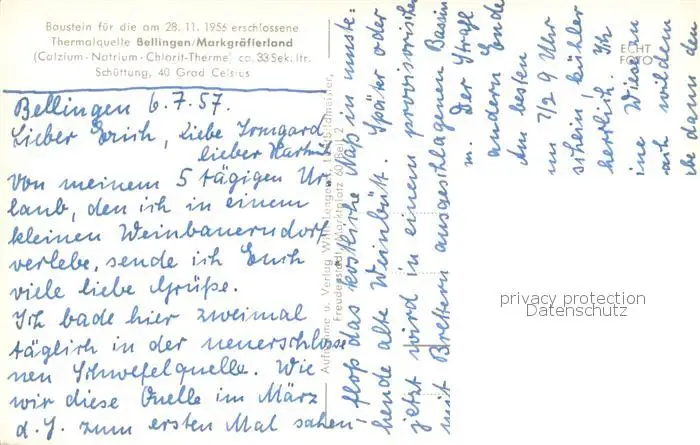 Baustein für die am 28. 11. 1956 erschlossene
Thermalquelle Bellingen/Markgräflerland
(Calzium-Natrium-Chlorit-Therme) ca. 33 Sek. ltr.
Schüttung, 40 Grad Celsius
Bellingen 6.7.57.
Lieber Erich, liebe Irmgard,
lieber
von meinem 5 tägigen Ur
laub, den ich in einem
kleinen Weinbauerndorf
verlebe, sende ich Euch
viele liebe Grüße.
Ich bade hier zweimal
täglich in der neuerschlosse
nen Schwefelquelle. Wie
wir diese Quelle im März
d. J. zum ersten Mal sahen,
floß das köstliche Naß in
hende alte Weinbütt. Später oder
jetzt wird in einem provisorischen
mit Brettern ausgeschlagenen Bassin
m. Der
andern Ende
Am besten
um 7/2 9 Uhr
schein, kühler
herrlich. Ich
ine Wiese
wildem
dann den
Aufnahme u. Verlag
Freudenstadt, Marktplatz 60
ECHT
FOTO
privacy protection
Datenschutz